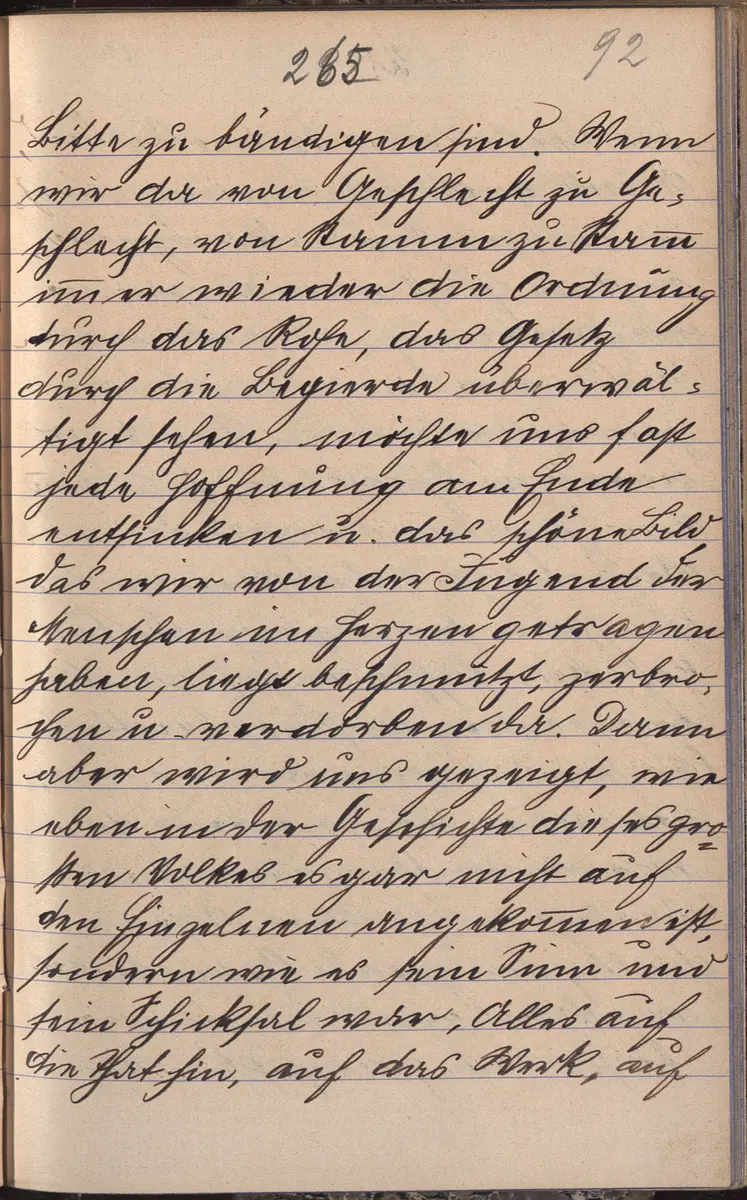 265
92
Bitte zu bändigen sind. Wenn
wir da von Geschlecht zu Ge-
schlecht, von Stamm zu Stam̅
im̅er wieder die Ordnung
durch das Rohe, das Gesetz
durch die Begierde überwäl-
tigt sehen, möchte uns fast
jede Hoffnung am Ende
entsinken u. das schöne Bild
das wir von der Jugend der
Menschen im Herzen getragen
haben, liegt beschmutzt, zerbro-
chen u. verdorben da. Dann
aber wird uns gezeigt, wie
eben in der Geschichte dieses gro-
ßen Volkes es gar nicht auf
den Einzelnen angekom̅en ist,
sondern wie es sein Sinn und
sein Schicksal war, Alles auf
die That hin, auf das Werk, auf